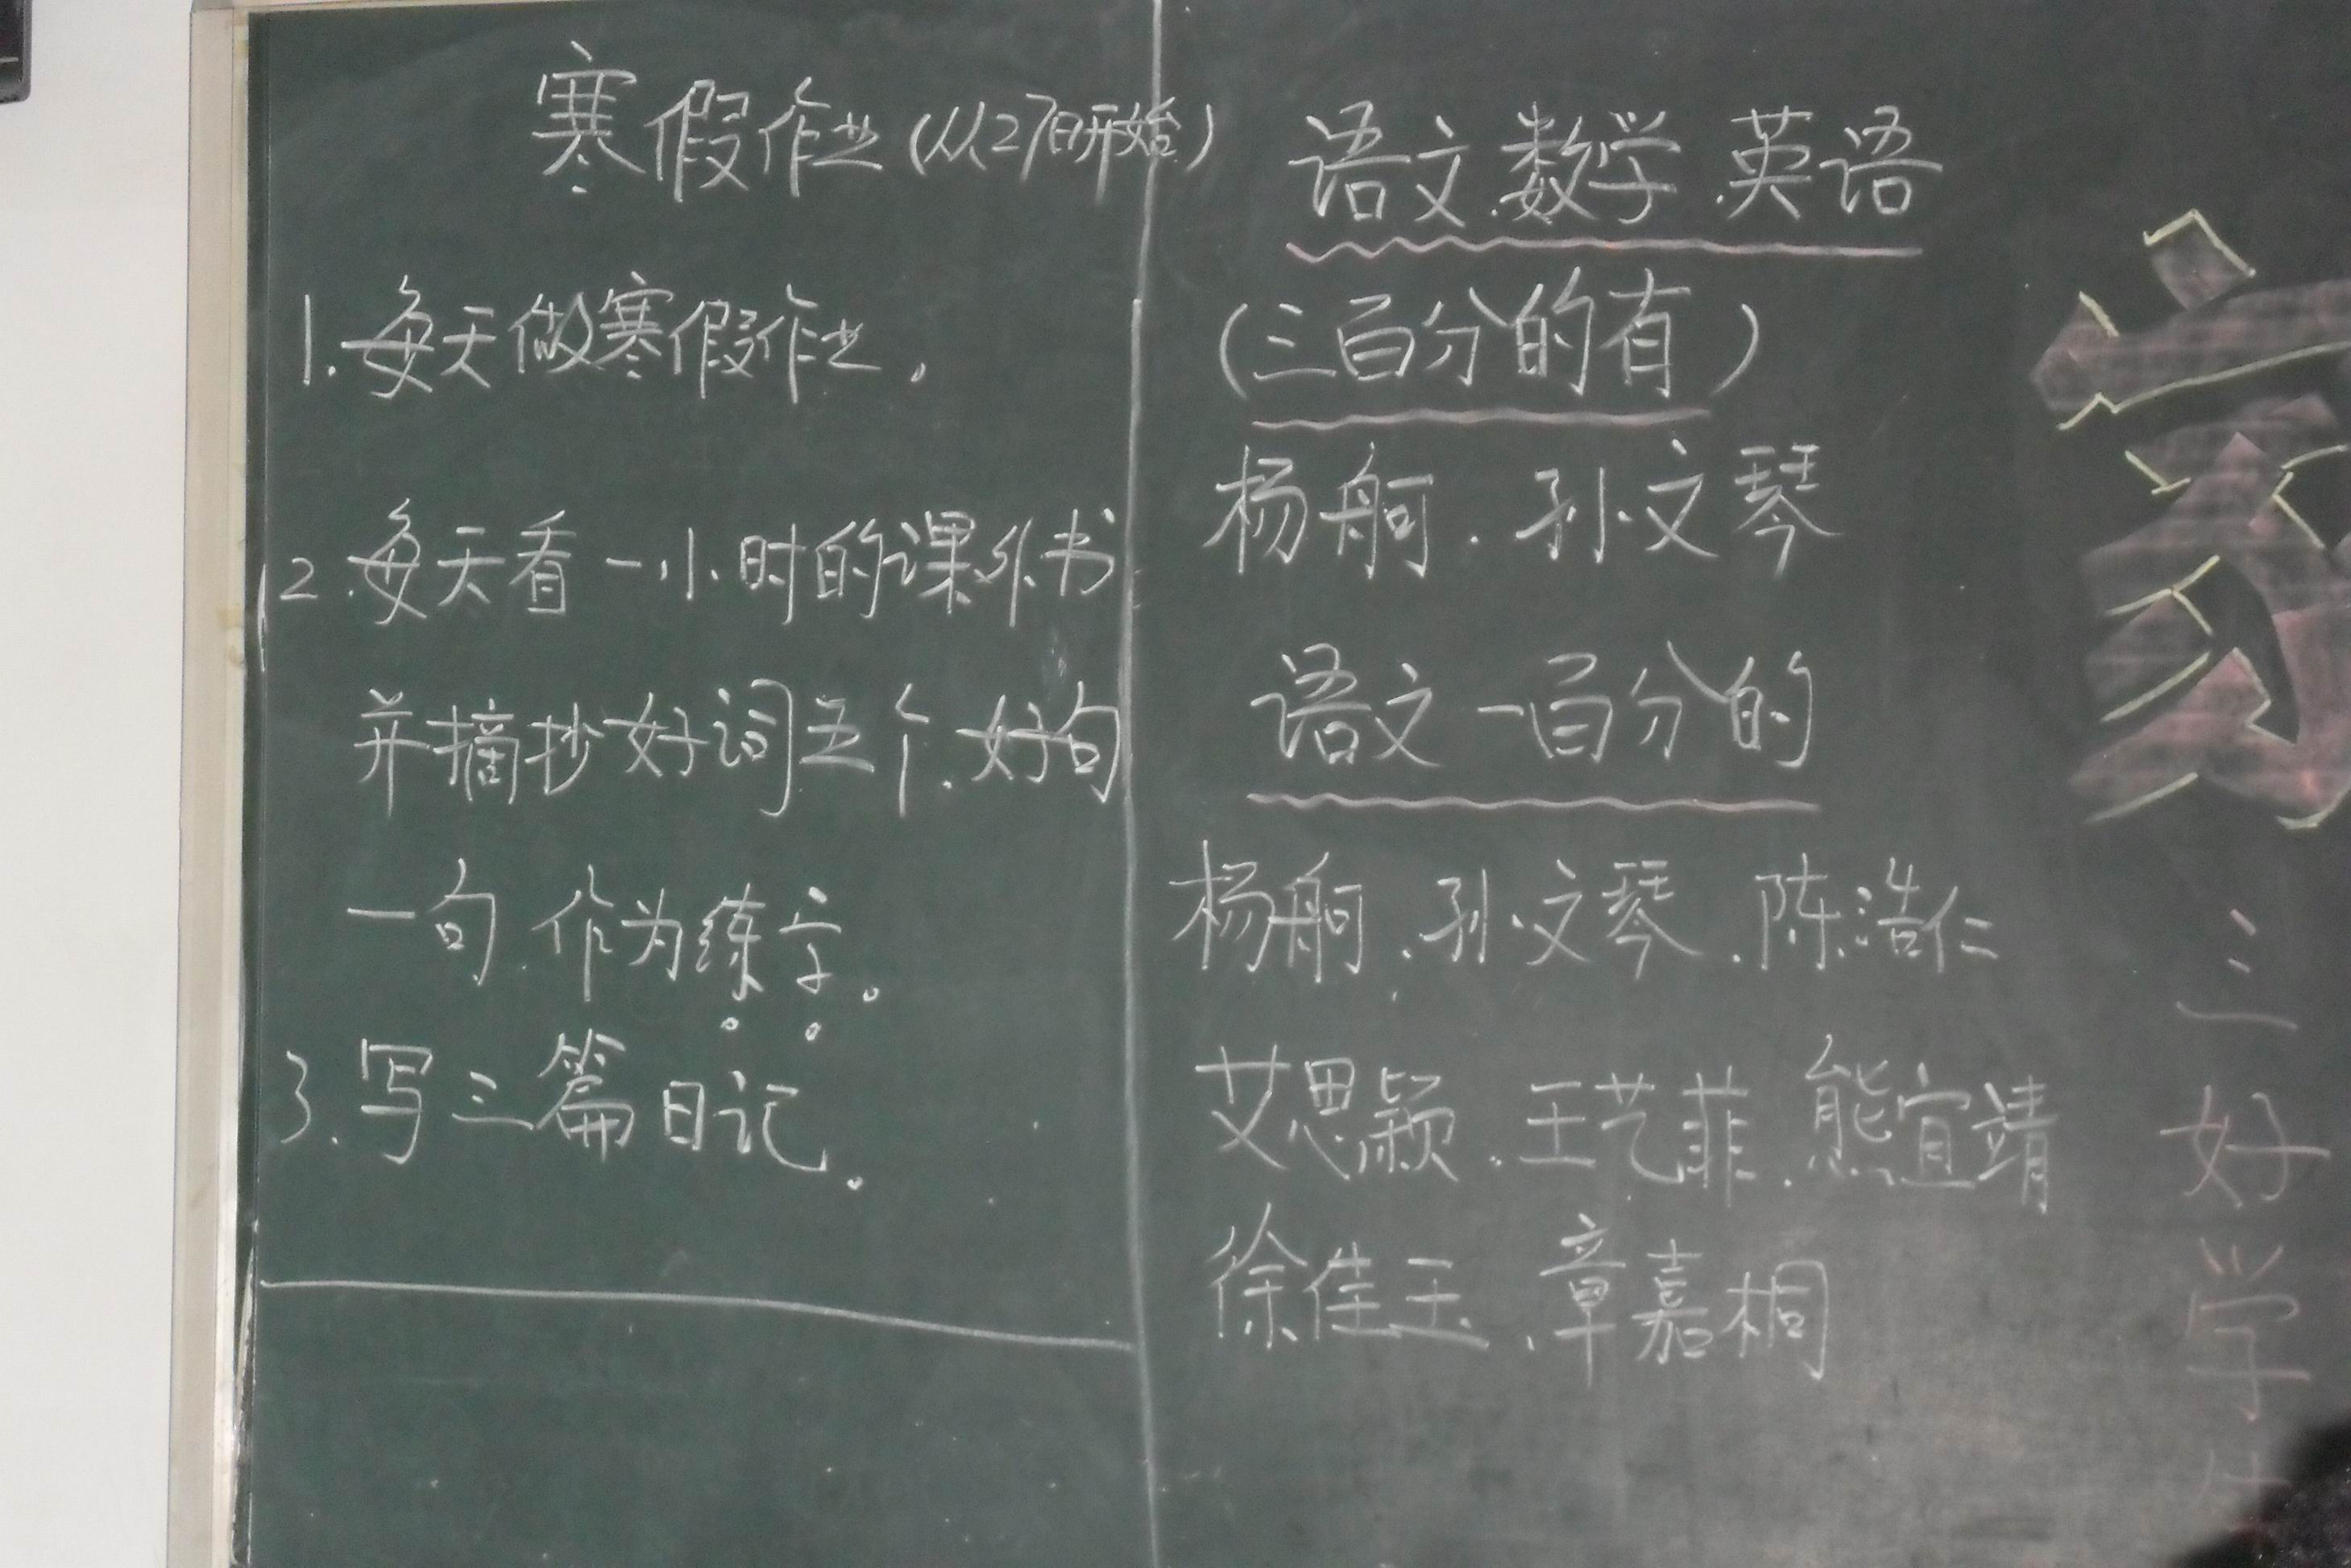 寒假作业(从27日开始)
1.每天做寒假作业。
2.每天看一小时的课外书
并摘抄好词五个.好句
一句.作为练字。
3.写三篇日记。
语文.数学.英语
(三百分的有)
杨舸.孙文琴
语文一百分的
杨舸.孙文琴.陈浩仁
艾思颖.王艺菲.熊宜靖
徐佳玉.章嘉桐
三好学